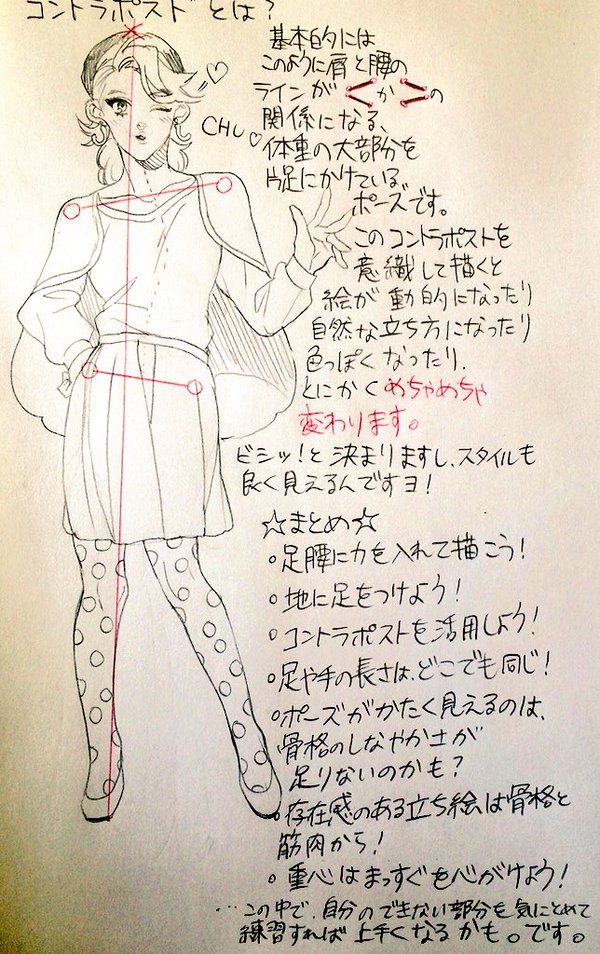 コントラポストとは？
基本的には
このように肩と腰の
ラインが <か> の
関係になる、
体重の大部分を
片足にかけている、
ポーズです。
CHU♡
このコントラポストを
意識して描くと
絵が動的になったり
自然な立ち方になったり
色っぽくなったり、
とにかくめちゃめちゃ
変わります。
ビシッ！と決まりますし、スタイルも
良く見えるんですヨ！
☆まとめ☆
。足腰に力を入れて描こう！
。地に足をつけよう！
。コントラポストを活用しよう！
。足や手の長さは、どこでも同じ！
。ポーズがかたく見えるのは、
骨格のしなやかさが
足りないのかも？
。存在感のある立ち絵は骨格と
筋肉から！
。重心はまっすぐを心がけよう！
…この中で、自分のできない部分を気にとめて
練習すれば上手くなるかも。です。